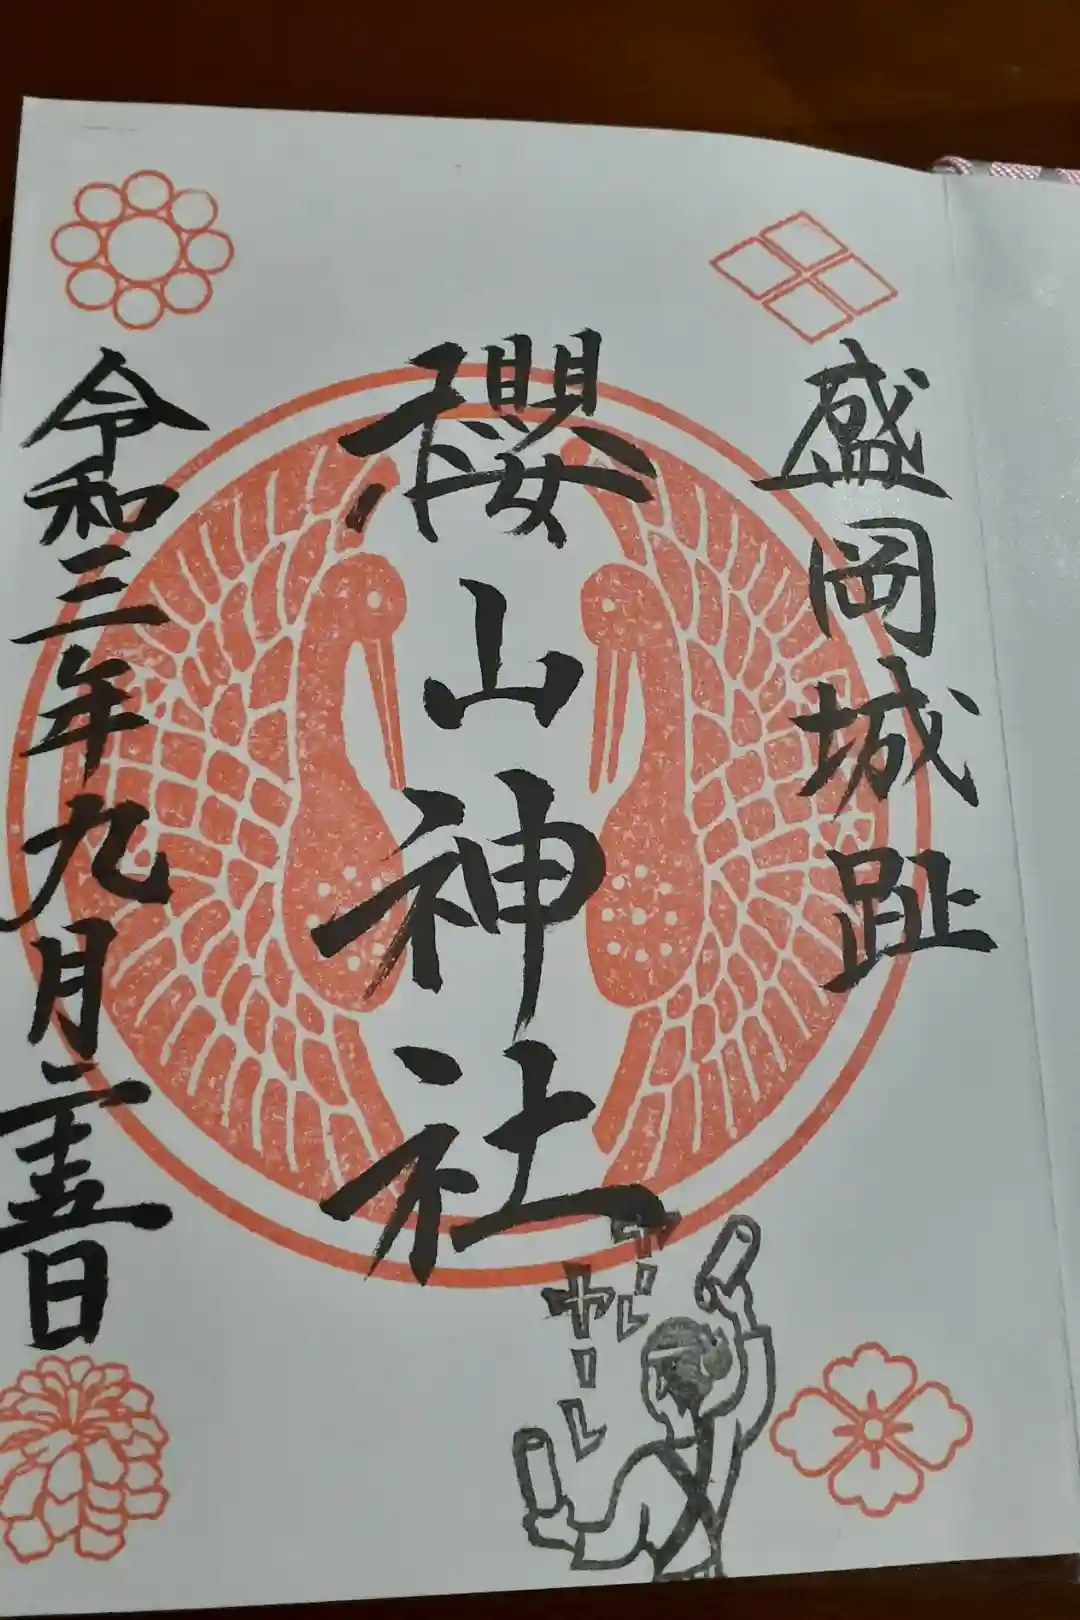 盛岡城趾
櫻山神社
令和三年九月二十五日
ヤーレ
ヤーレ